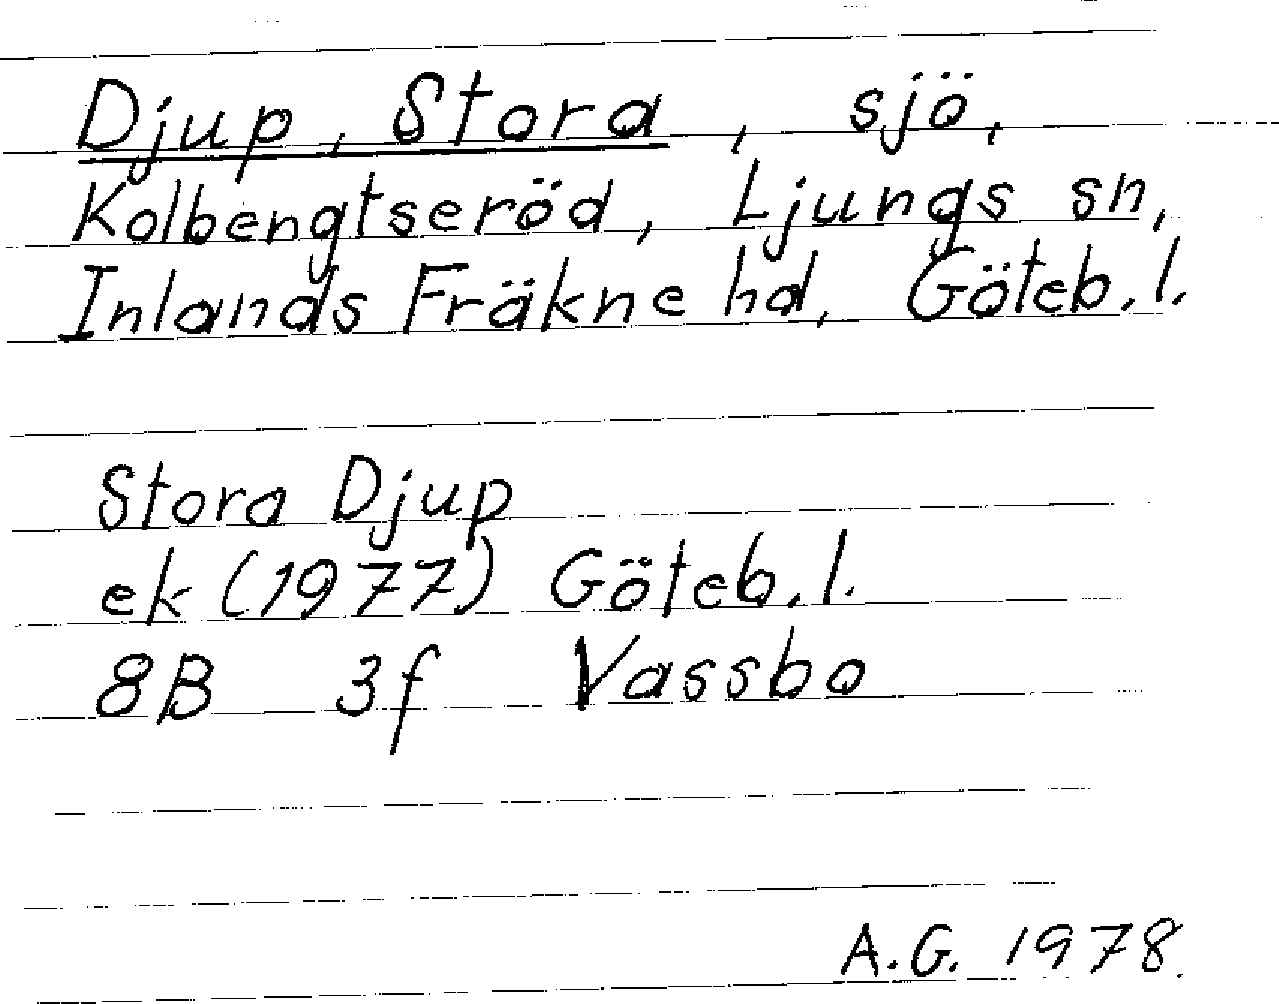 Djup, Stora, sjö,
Kolbengtseröd, Ljungs sn,
Inlands Fräkne hd, Göteb.l.
Stora Djup
ek (1977) Göteb.l.
8B 3f Vassbo
A.G. 1978.